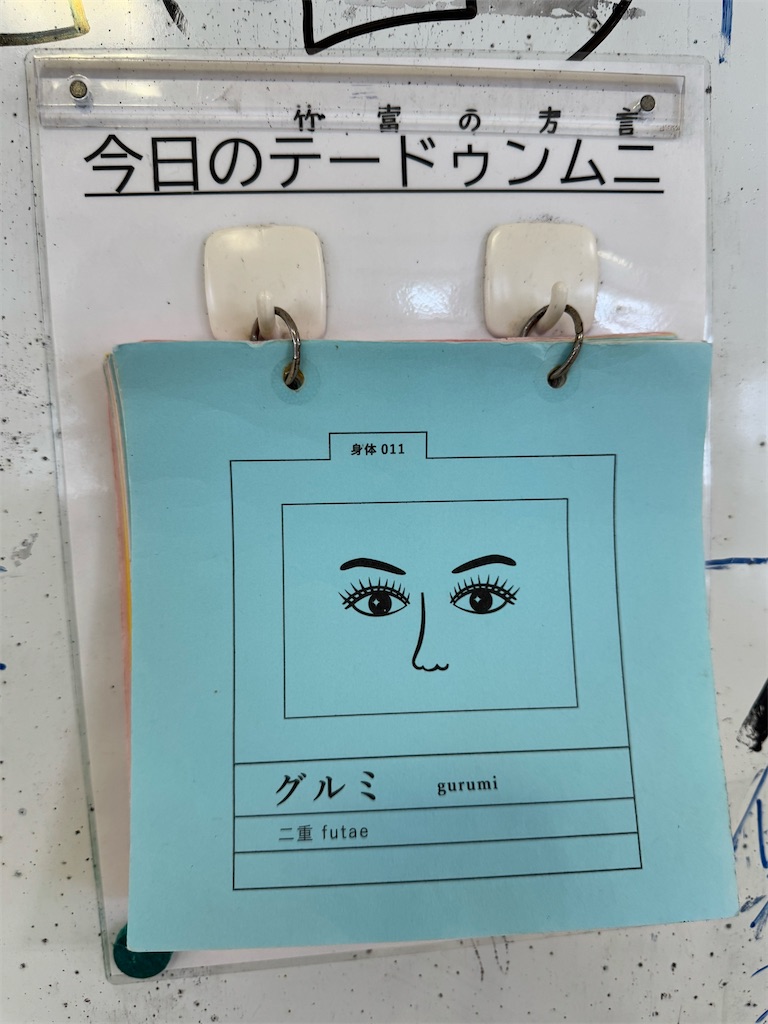 竹富の方言
今日のテードゥンムニ
身体 011
グルミ gurumi
二重 futae